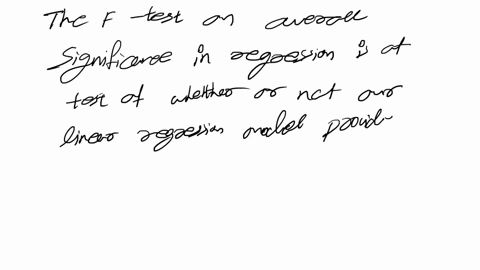 The F test on overall
Significance in regression is at
test of whether or not our
linear regression model provid